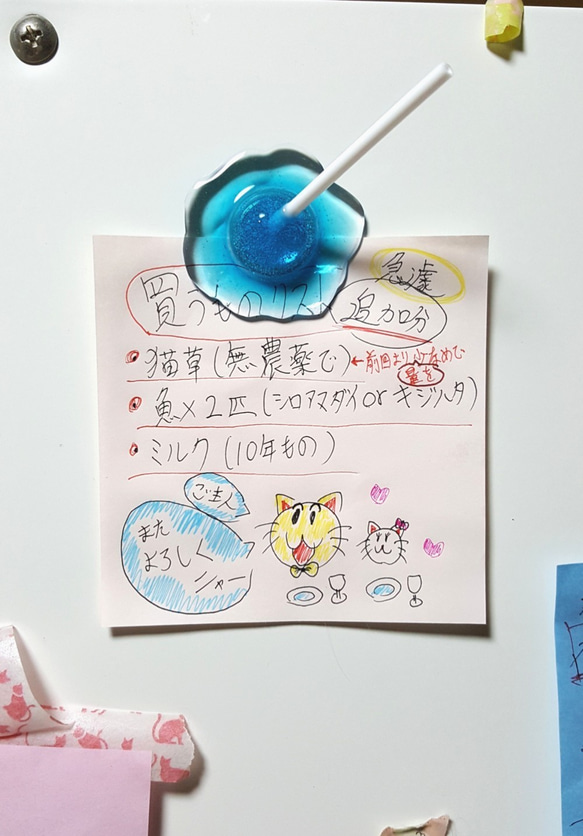 急遽
買うものリスト 追加分
・猫草(無農薬で)←前回より少なめで
量を
・魚×2匹(シロアマダイorキジハタ)
・ミルク(10年もの)
ご主人
また
よろしく
ニャー